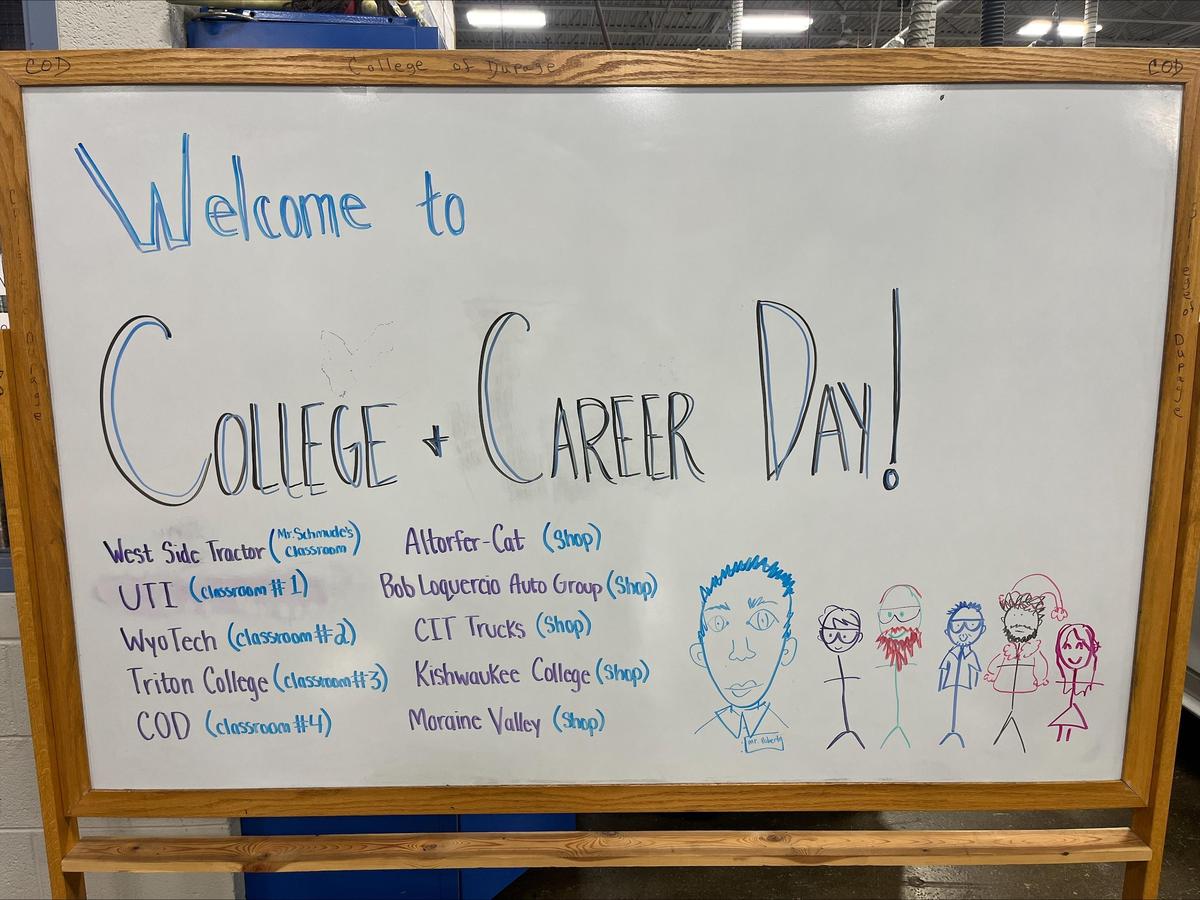 COD College of Dupage COD
Welcome to
COLLEGE + CAREER DAY!
West Side Tractor (Mr. Schmude's classroom)
UTI (classroom #1)
WyoTech (classroom #2)
Triton College (classroom #3)
COD (classroom #4)
Altorfer-Cat (Shop)
Bob Loquercio Auto Group (Shop)
CIT Trucks (Shop)
Kishwaukee College (Shop)
Moraine Valley (Shop)
Mr.
of Dupage